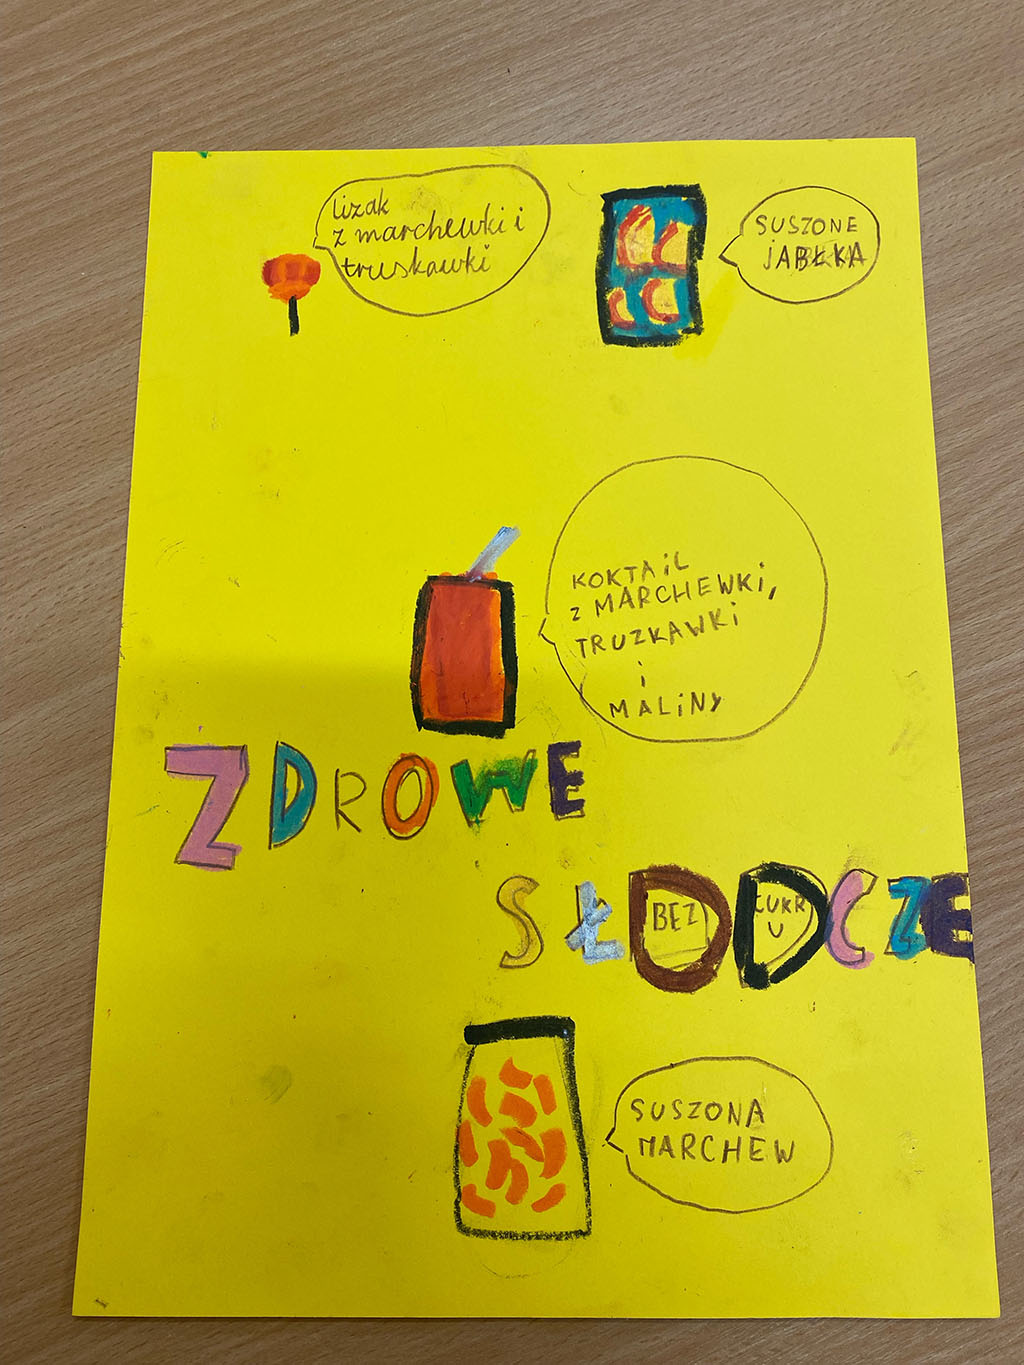 lizak
z marchewki i
truskawki
SUSZONE
jABŁKA
KOKTAiL
z MARCHEWKi,
TRUZKAWKi
i
MALiNY
ZDROWE
SŁODCZE
BEZ
CUKR
U
SUSZONA
MARCHEW